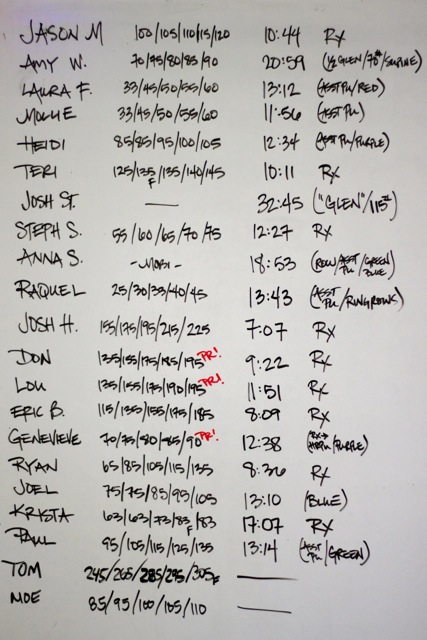 JASON M 100/105/110/115/120 10:44 Rx
AMY W. 70/75/80/85/90 20:59 (½ GLEN/75#/SUPINE)
LAURA F. 33/45/50/55/60 13:12 (ASST PU/RED)
MOLLIE 33/45/50/55/60 11:56 (ASST PU)
HEIDI 85/85/95/100/105 12:34 (ASST PU/PURPLE)
TERI 125/135F/135/140/145 10:11 Rx
JOSH ST. — 32:45 ("GLEN"/115#)
STEPH S. 55/60/65/70/75 12:27 Rx
ANNA S. -MOBI- 18:53 (ROW/ASST PU/GREEN BLUE)
RAQUEL 25/30/33/40/45 13:43 (ASST PU/RING ROWS)
JOSH H. 155/175/195/215/225 7:07 Rx
DON 135/155/175/185/195 PR! 9:22 Rx
LOU 135/155/175/190/195 PR! 11:51 Rx
ERIC B. 115/135/155/175/185 8:09 Rx
GENEVIEVE 70/75/80/85/90 PR! 12:38 (PURPLE)
RYAN 65/85/105/115/135 8:36 Rx
JOEL 75/75/85/95/105 13:10 (BLUE)
KRISTA 63/63/73/83F/83 17:07 Rx
PAUL 95/105/115/125/135 13:14 (ASST PU/GREEN)
TOM 245/265/285/295/305F —
MOE 85/95/100/105/110 —